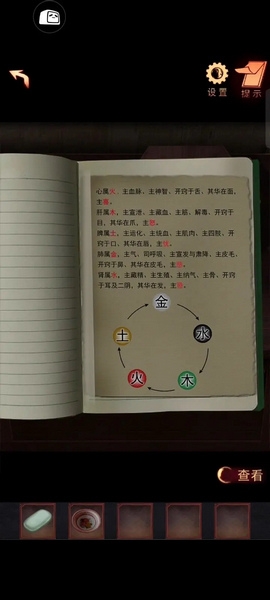 设置
提示
心属火，主血脉，主神智、开窍于舌、其华在面，
主喜。
肝属木，主宣泄、主藏血、主筋、解毒、开窍于
目，其华在爪，主怒。
脾属土，主运化、主统血、主肌肉、主四肢、开
窍于口、其华在唇，主
肺属金，主气、司呼吸、主宣发与肃降、主皮毛，
开窍于鼻，其华在皮毛，主
肾属水，主藏精、主生殖、主纳气、主骨、开窍
于耳及二阴，其华在发，主
金
土
水
火
木
查看